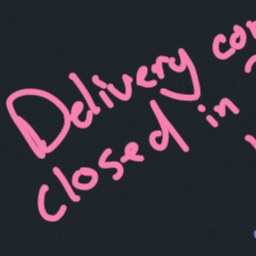 Delivery
closed in